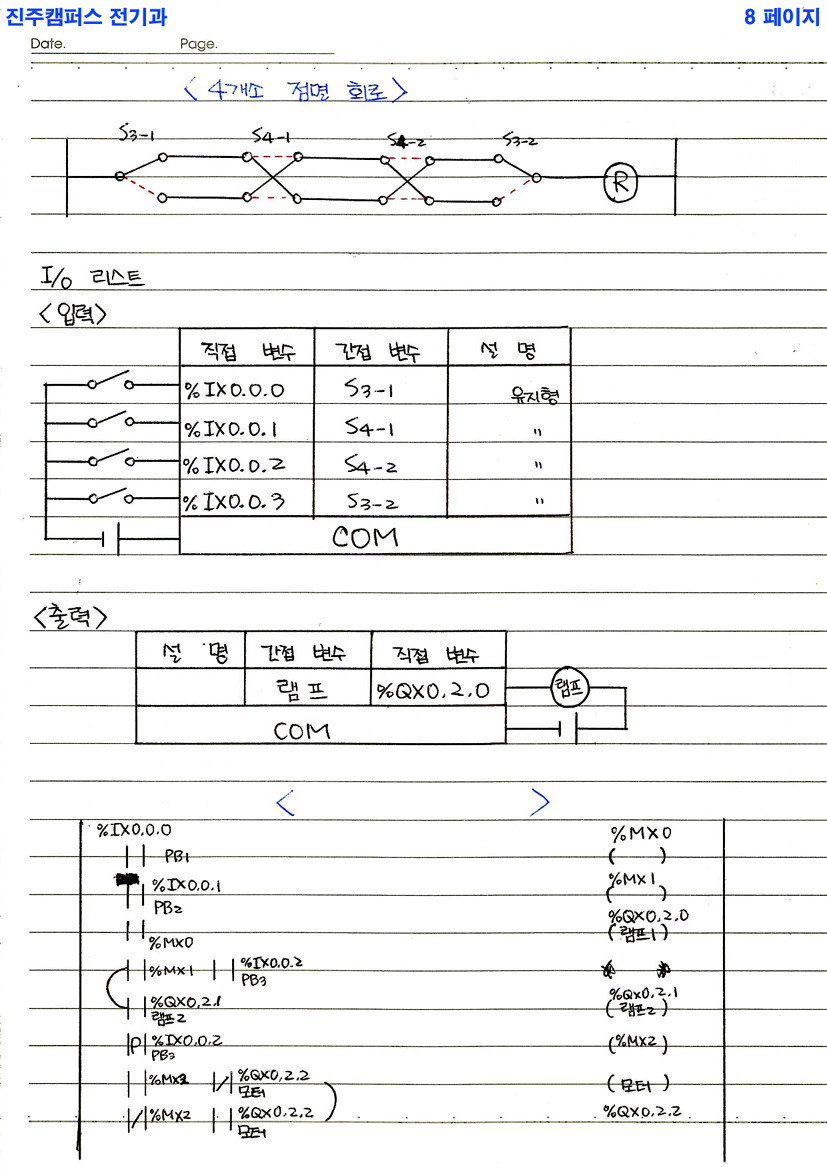 진주캠퍼스 전기과 8 페이지
Date. Page.
< 4개소 점멸 회로 >
S3-1 S4-1 S4-2 S3-2
R
I/O 리스트
<입력>
직접 변수 간접 변수 설 명
%IX0.0.0 S3-1 유지형
%IX0.0.1 S4-1 "
%IX0.0.2 S4-2 "
%IX0.0.3 S3-2 "
COM
<출력>
설 명 간접 변수 직접 변수
램프 %QX0.2.0 램프
COM
< >
%IX0.0.0 %MX0
PB1 ( )
%IX0.0.1 %MX1
PB2 ( )
%QX0.2.0
%MX0 (램프1)
%MX1 %IX0.0.2
PB3
%QX0.2.1 %QX0.2.1
램프2 (램프2)
P %IX0.0.2 (%MX2)
PB3
%MX2 %QX0.2.2 (모터)
모터
%MX2 %QX0.2.2 %QX0.2.2
모터